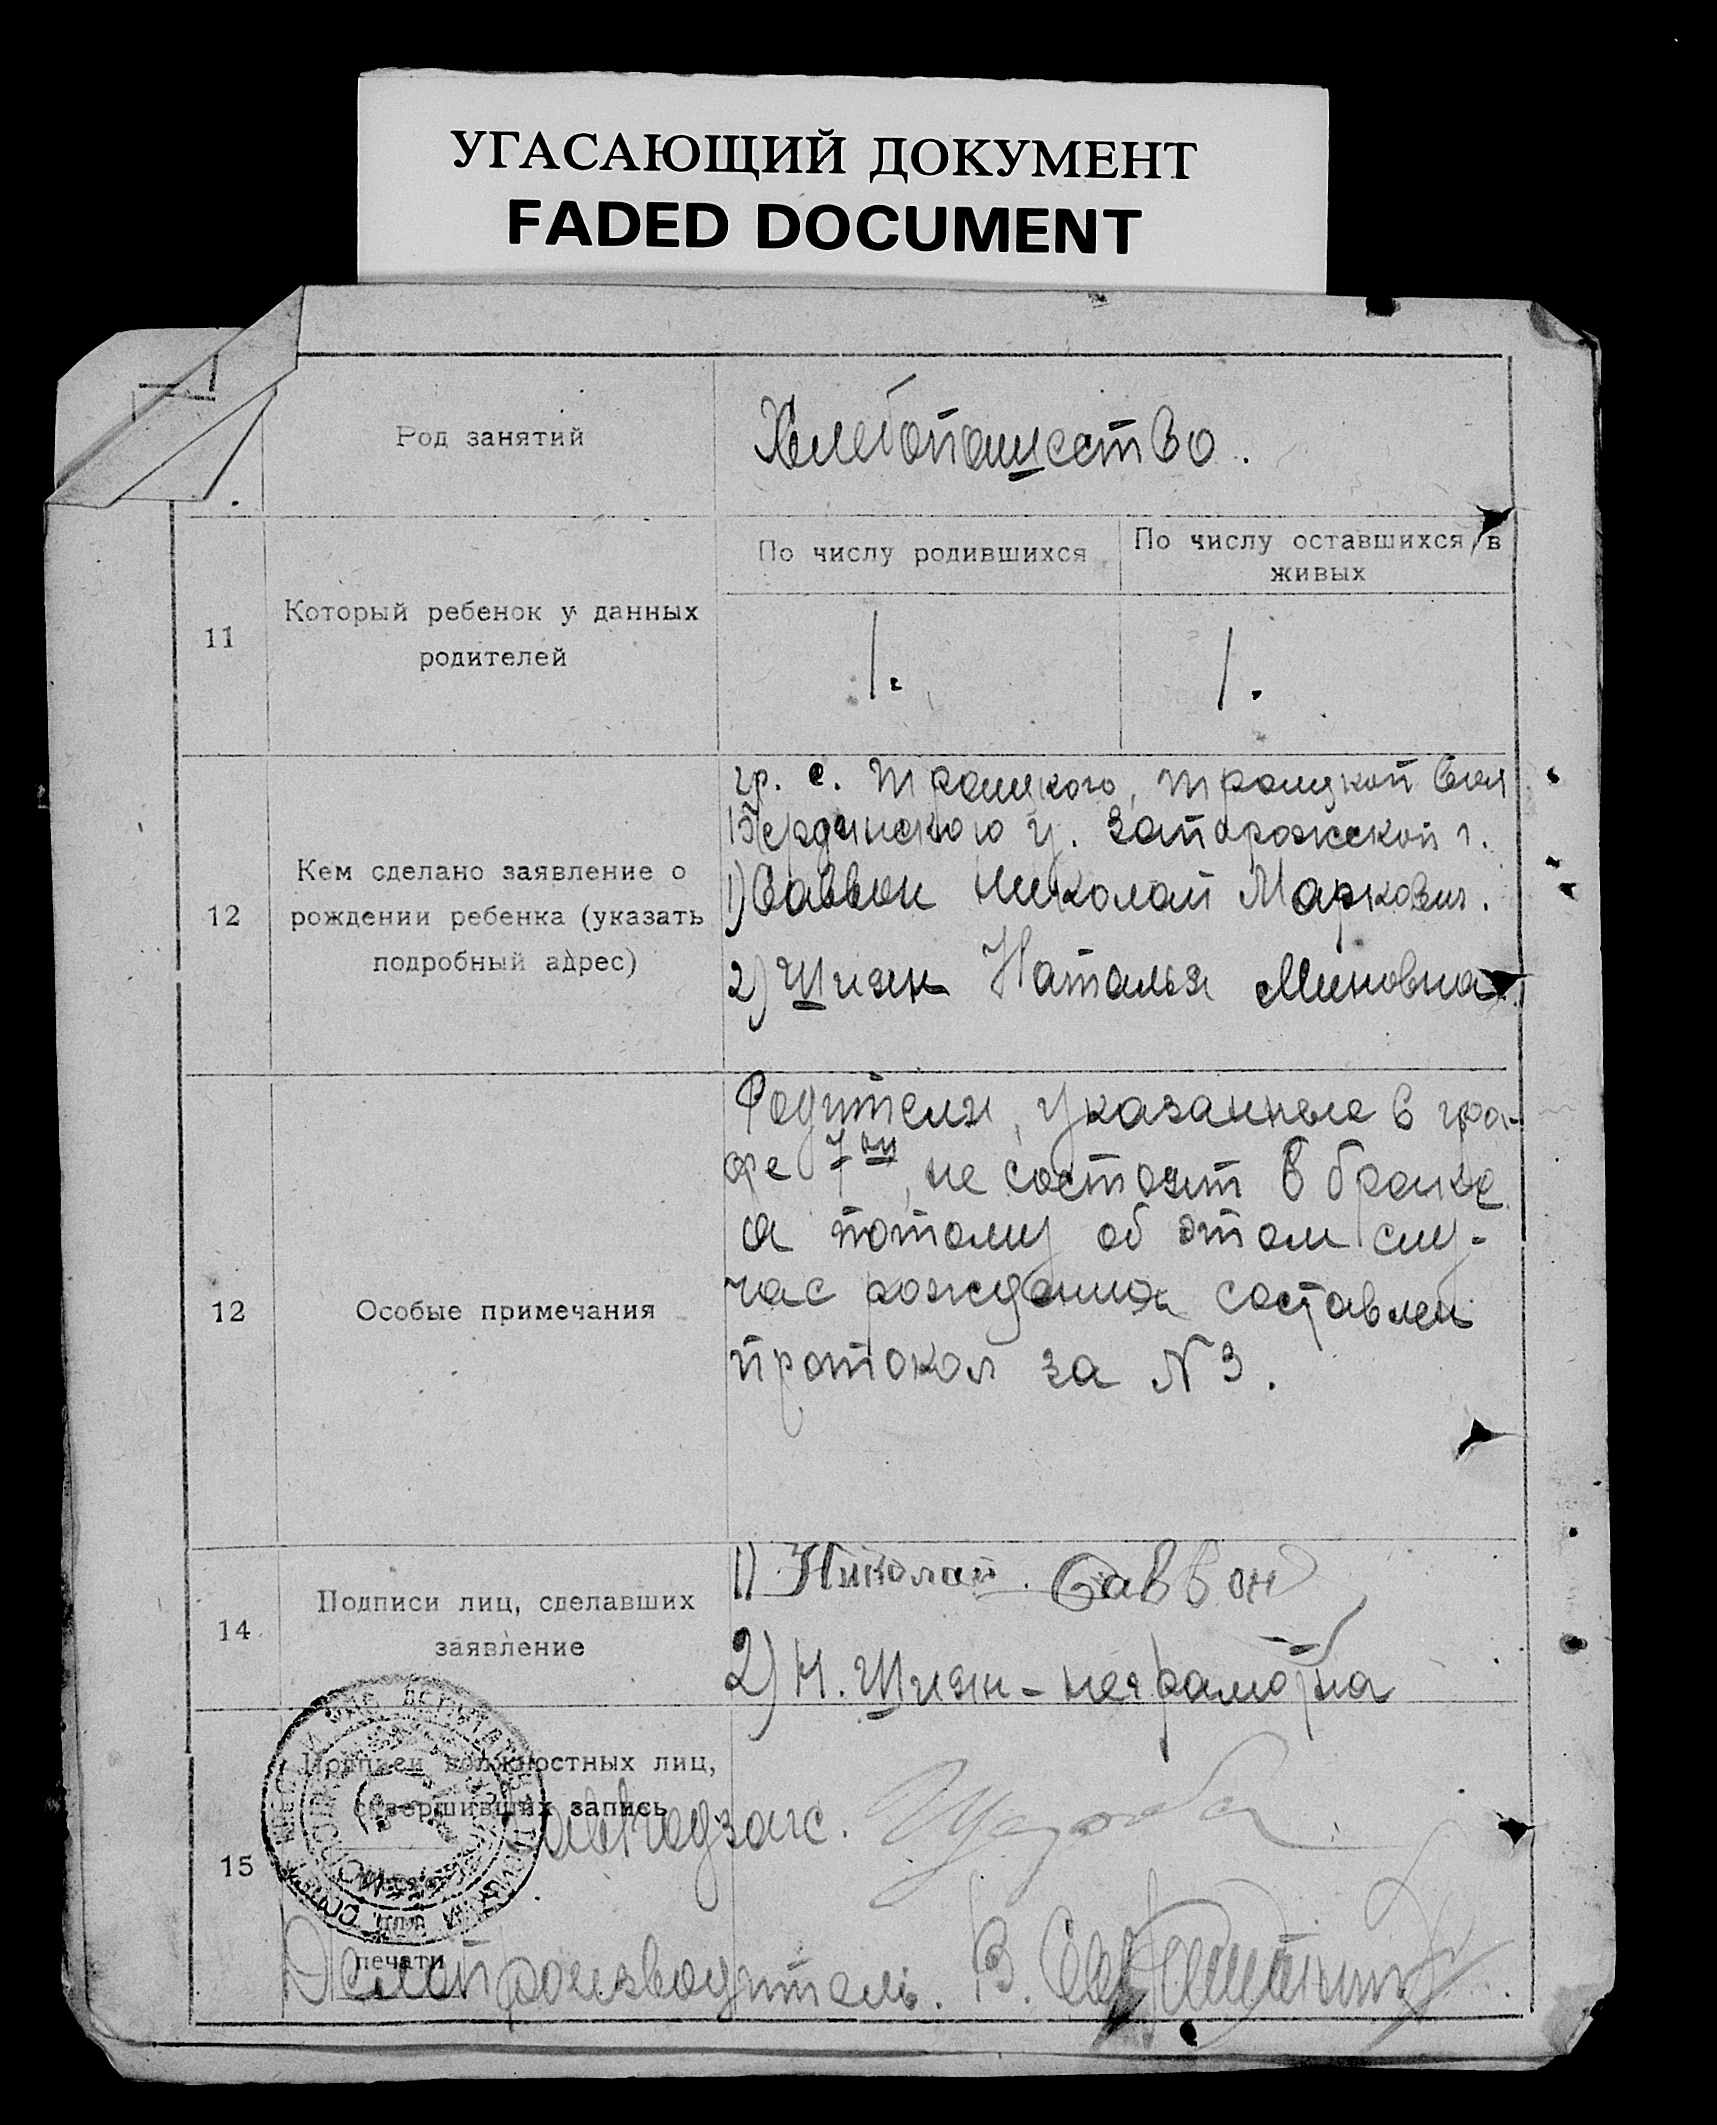 УГАСАЮЩИЙ ДОКУМЕНТ
FADED DOCUMENT
Род занятий
Хлебопашество.
11
Который ребенок у данных
родителей
По числу родившихся
По числу оставшихся в
живых
1.
1.
12
Кем сделано заявление о
рождении ребенка (указать
подробный адрес)
гр. с. Троицкого, Троицкой вол
Бердянского у. Запорожской г.
1) Саввон Николай Маркович.
2) Шиян Наталья Миновна
12
Особые примечания
Родители, указанные в гра-
фе 7ой, не состоят в браке
а потому об этом слу-
чае рождения составлен
протокол за N 3.
14
Подписи лиц, сделавших
заявление
1) Николай Саввон
2) Н. Шиян - неграмотна
15
Подписи должностных лиц,
совершивших запись
Завподзагс.
печати
Делопроизводитель. В.